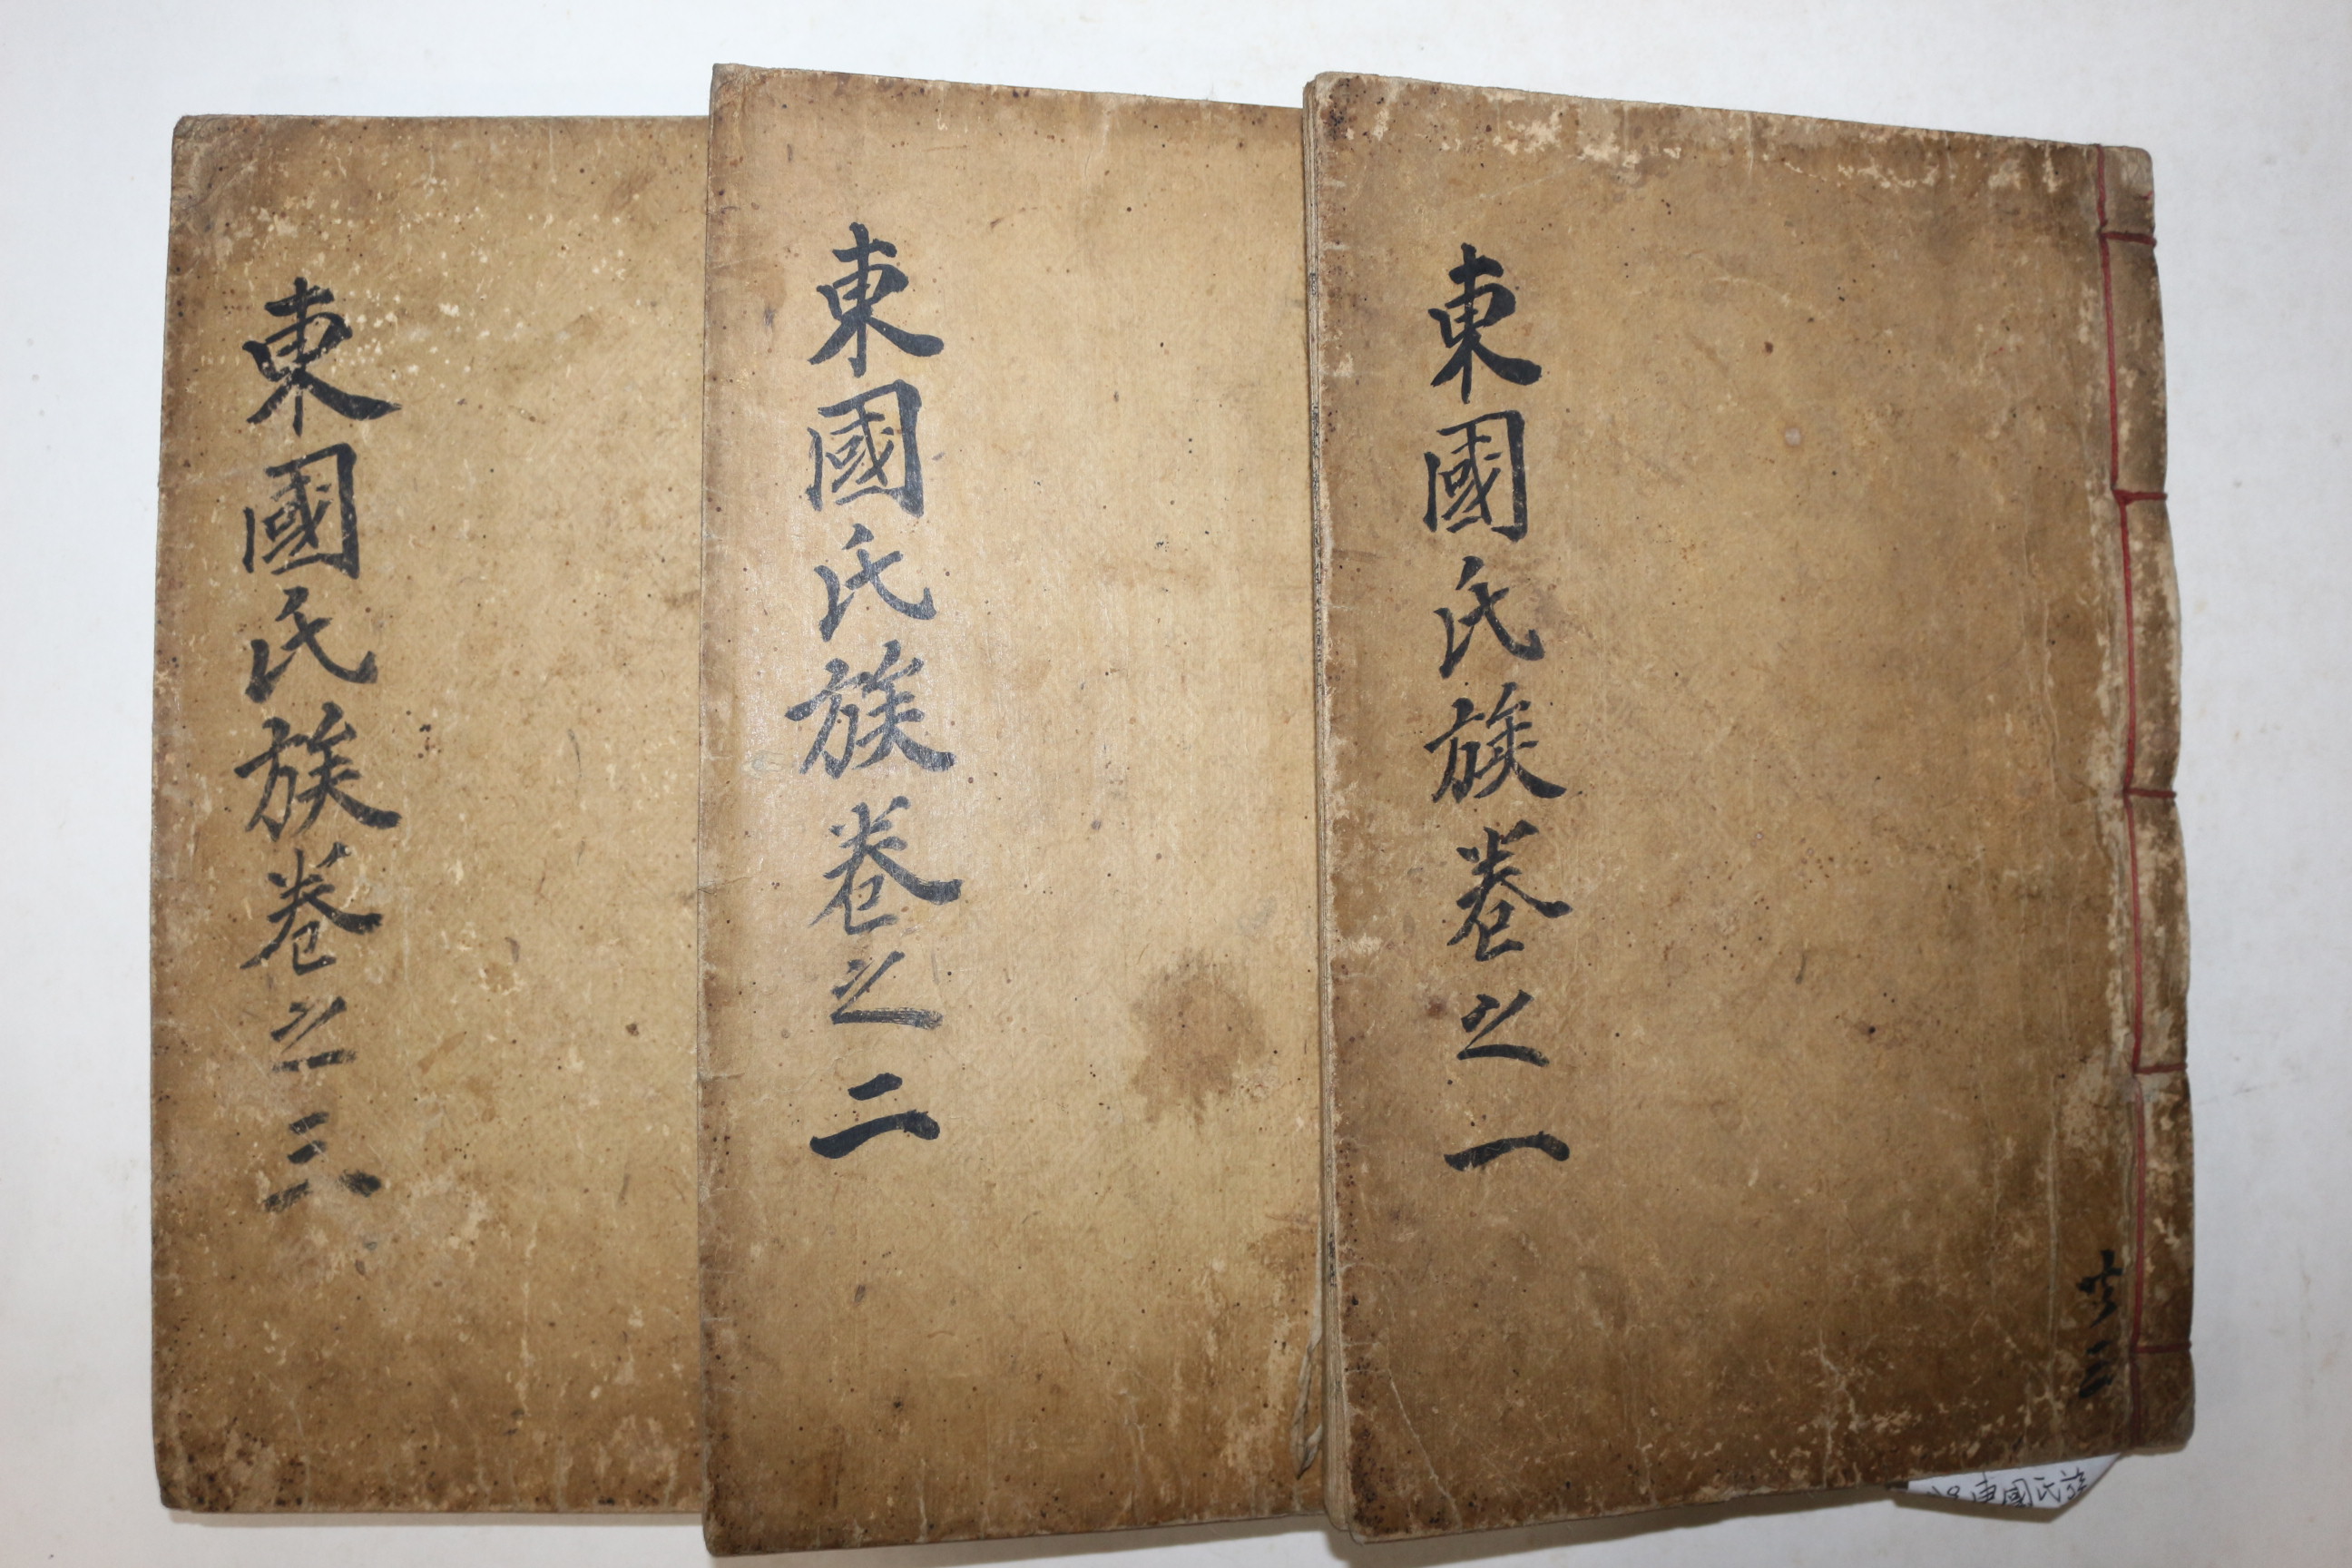 東國氏族卷之一
共三
東國氏族卷之二
東國氏族卷之三
東國氏族